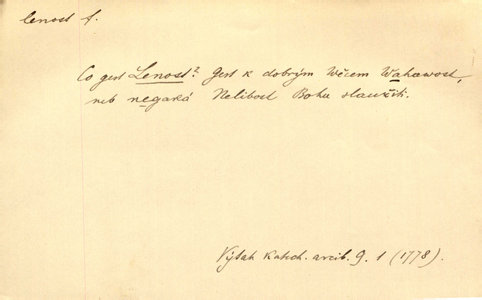 lenost f.
Co gest Lenost? Gest k dobrým Wěcem Wahawost,
neb negaká Nelibost Bohu slaužiti.
Výtah katech. arcib. 9. 1 (1778).